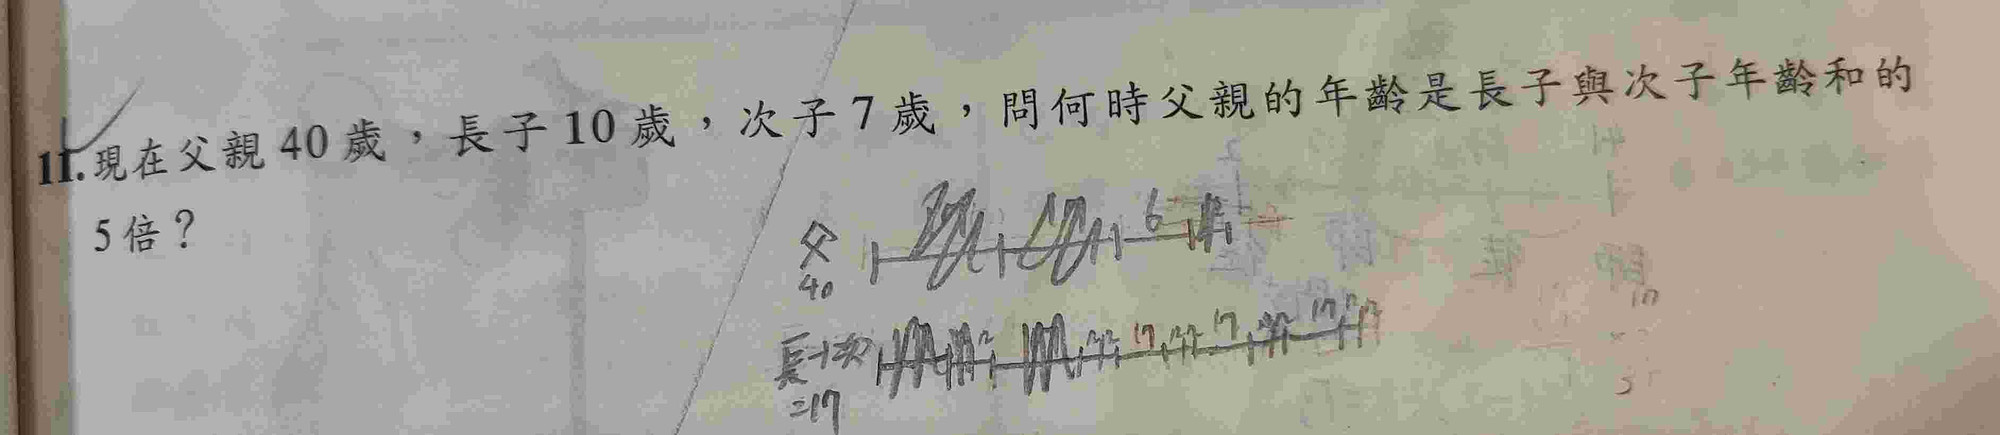 11.現在父親40歲，長子10歲，次子7歲，問何時父親的年齡是長子與次子年齡和的
5倍？
父
6
40
長+次
17
17
17
=17